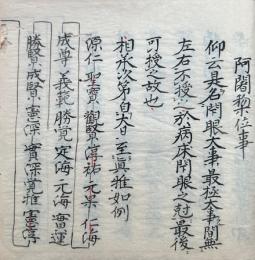 阿闍梨位事
仰云是名開眼大事最極大事聞無
左右不授之於病床開眼之冠最後
可授之故也
相承次第自大日至真雅如例
源仁 聖寳 觀賢 淳祐 元杲 仁海
成尊 義範 勝覚 定海 元海 實運
勝賢 成賢 憲深 實深 覚雅 憲淳